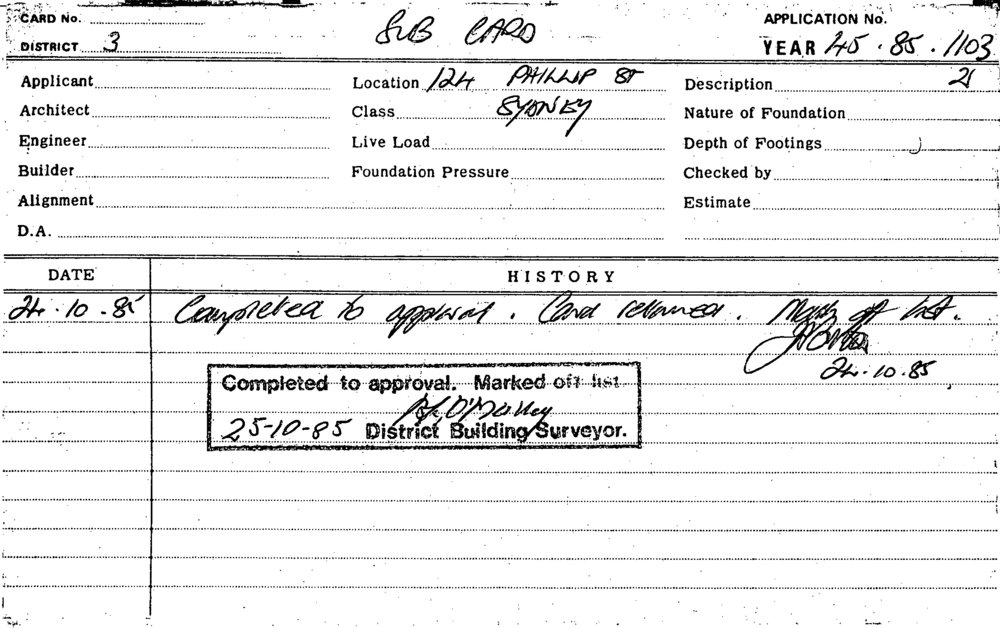 CARD No.
SUB CARD
APPLICATION No.
DISTRICT 3
YEAR 45 · 85 · 1103
Applicant
Location 124 PHILLIP ST
Description
Architect
Class SYDNEY
Nature of Foundation
Engineer
Live Load
Depth of Footings
Builder
Foundation Pressure
Checked by
Alignment
Estimate
D.A.
DATE
HISTORY
24·10·85 Completed to approval. Card returned. Mark off list.
24·10·85
Completed to approval. Marked off list
O'Malley
25-10-85 District Building Surveyor.